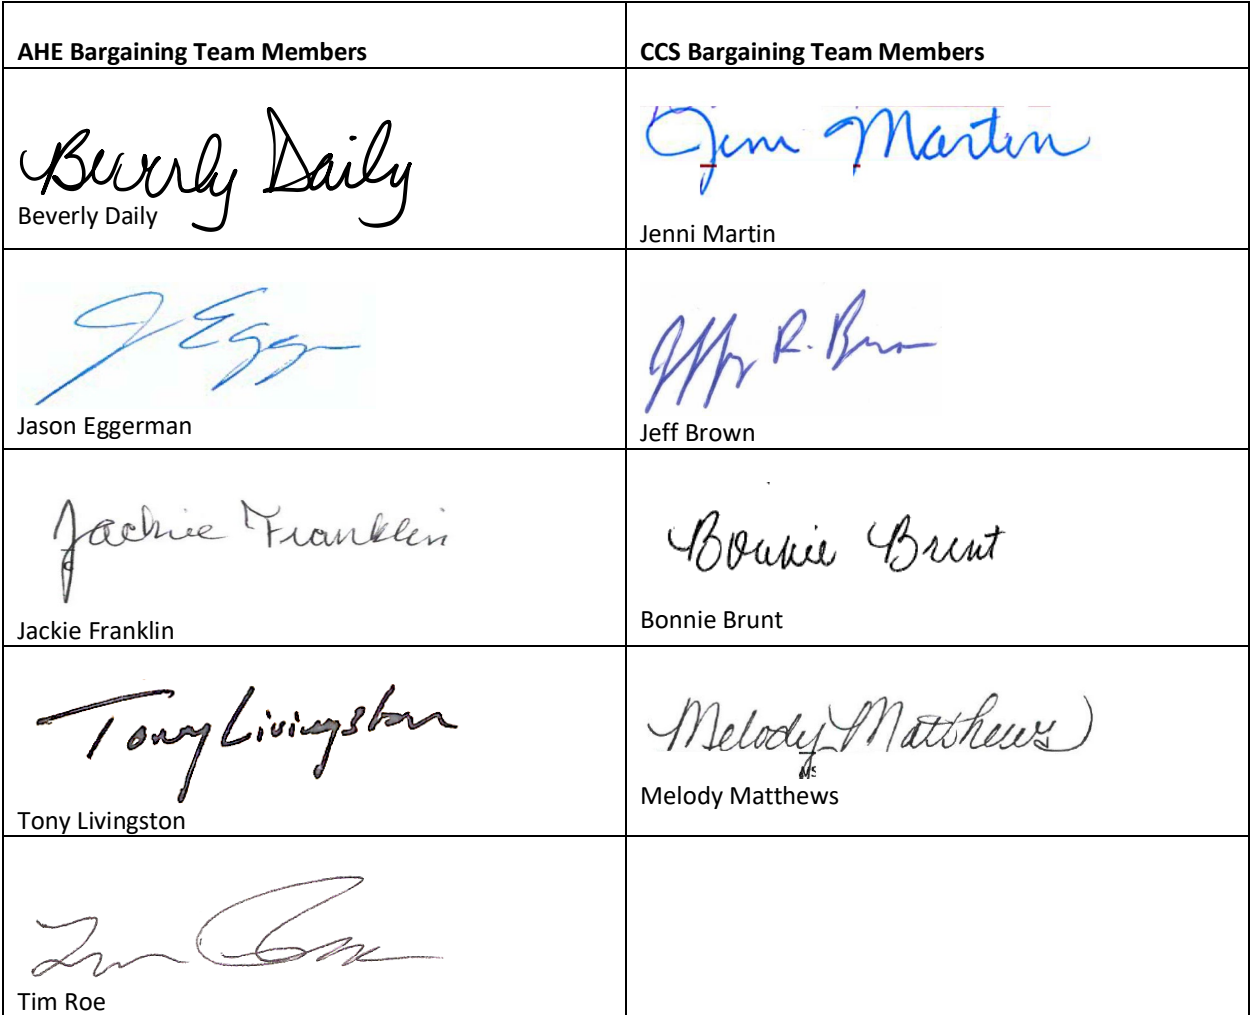 AHE Bargaining Team Members
CCS Bargaining Team Members
Beverly Daily
Beverly Daily
Jenni Martin
Jenni Martin
J Egg
Jason Eggerman
Jeffry R. Brown
Jeff Brown
Jackie Franklin
Jackie Franklin
Bonnie Brunt
Bonnie Brunt
Tony Livingston
Tony Livingston
Melody Matthews
Melody Matthews
Tim Roe
Tim Roe